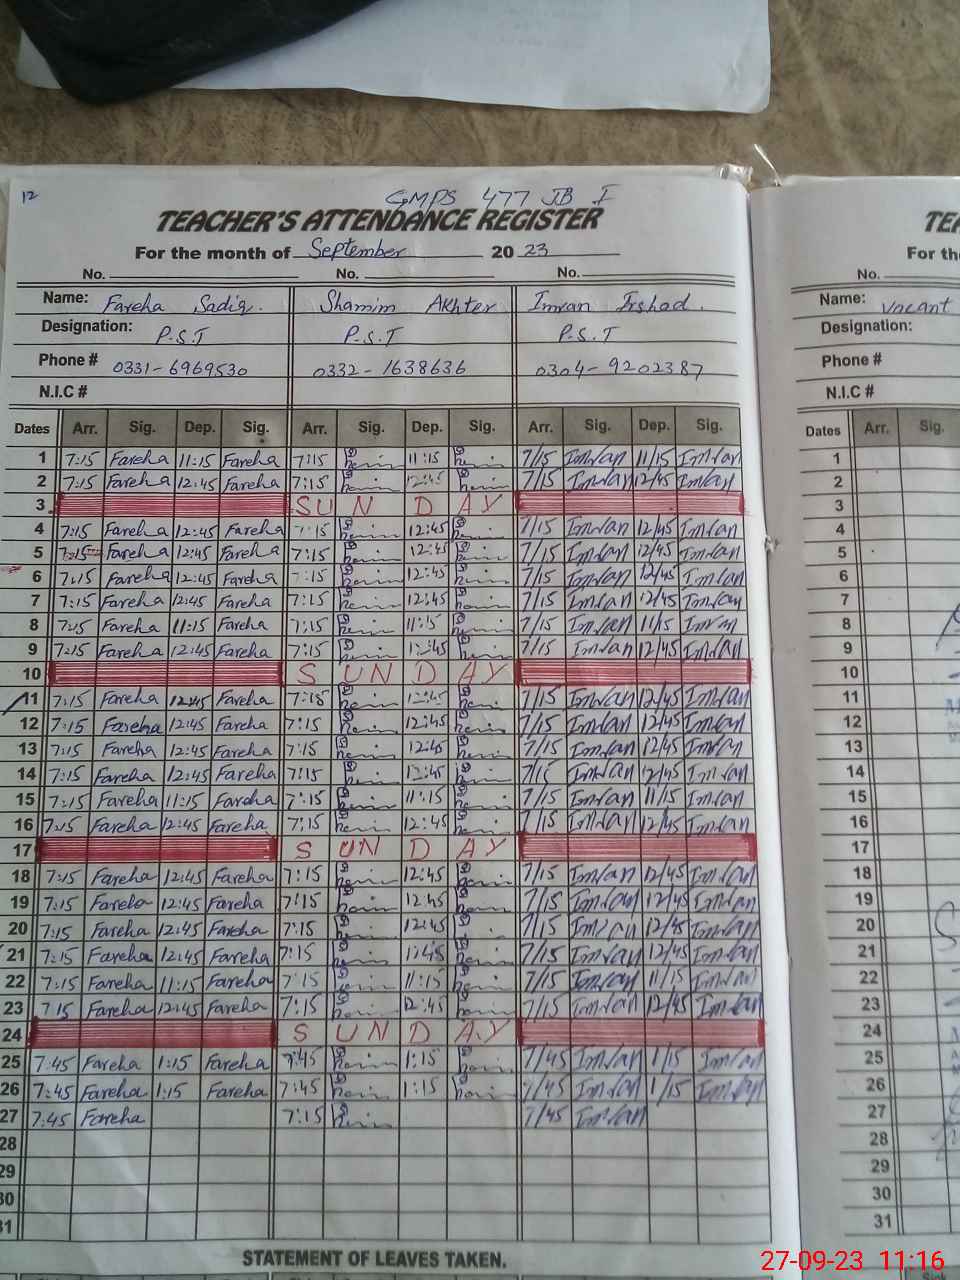 12
GMPS 477 JB I
TEACHER'S ATTENDANCE REGISTER
For the month of September 2023
No. No. No.
Name: Fareha Sadiq. Shamim Akhter Imran Irshad.
Designation: P.S.T P.S.T P.S.T
Phone # 0331-6969530 0332-1638636 0304-9202387
N.I.C #
Dates Arr. Sig. Dep. Sig. Arr. Sig. Dep. Sig. Arr. Sig. Dep. Sig.
1 7:15 Fareha 11:15 Fareha 7:15 11:15 7/15 Imran 11/15 Imran
2 7:15 Fareha 12:45 Fareha 7:15 12:45 7/15 Imran 12/45 Imran
3 SUNDAY
4 7:15 Fareha 12:45 Fareha 7:15 12:45 7/15 Imran 12/45 Imran
5 7:15 Fareha 12:45 Fareha 7:15 12:45 7/15 Imran 12/45 Imran
6 7:15 Fareha 12:45 Fareha 7:15 12:45 7/15 Imran 12/45 Imran
7 7:15 Fareha 12:45 Fareha 7:15 12:45 7/15 Imran 12/45 Imran
8 7:15 Fareha 11:15 Fareha 7:15 11:15 7/15 Imran 11/15 Imran
9 7:15 Fareha 12:45 Fareha 7:15 12:45 7/15 Imran 12/45 Imran
10 SUNDAY
11 7:15 Fareha 12:45 Fareha 7:15 12:45 7/15 Imran 12/45 Imran
12 7:15 Fareha 12:45 Fareha 7:15 12:45 7/15 Imran 12/45 Imran
13 7:15 Fareha 12:45 Fareha 7:15 12:45 7/15 Imran 12/45 Imran
14 7:15 Fareha 12:45 Fareha 7:15 12:45 7/15 Imran 12/45 Imran
15 7:15 Fareha 11:15 Fareha 7:15 11:15 7/15 Imran 11/15 Imran
16 7:15 Fareha 12:45 Fareha 7:15 12:45 7/15 Imran 12/45 Imran
17 SUNDAY
18 7:15 Fareha 12:45 Fareha 7:15 12:45 7/15 Imran 12/45 Imran
19 7:15 Fareha 12:45 Fareha 7:15 12:45 7/15 Imran 12/45 Imran
20 7:15 Fareha 12:45 Fareha 7:15 12:45 7/15 Imran 12/45 Imran
21 7:15 Fareha 12:45 Fareha 7:15 12:45 7/15 Imran 12/45 Imran
22 7:15 Fareha 11:15 Fareha 7:15 11:15 7/15 Imran 11/15 Imran
23 7:15 Fareha 12:45 Fareha 7:15 12:45 7/15 Imran 12/45 Imran
24 SUNDAY
25 7:45 Fareha 1:15 Fareha 7:45 1:15 7/45 Imran 1/15 Imran
26 7:45 Fareha 1:15 Fareha 7:45 1:15 7/45 Imran 1/15 Imran
27 7:45 Fareha 7:15 7/45 Imran
28
29
30
31
STATEMENT OF LEAVES TAKEN.
No.
Name: Vacant
Designation:
Phone #
N.I.C #
Dates Arr. Sig.
1
2
3
4
5
6
7
8
9
10
11
12
13
14
15
16
17
18
19
20
21
22
23
24
25
26
27
28
29
30
31
27-09-23 11:16